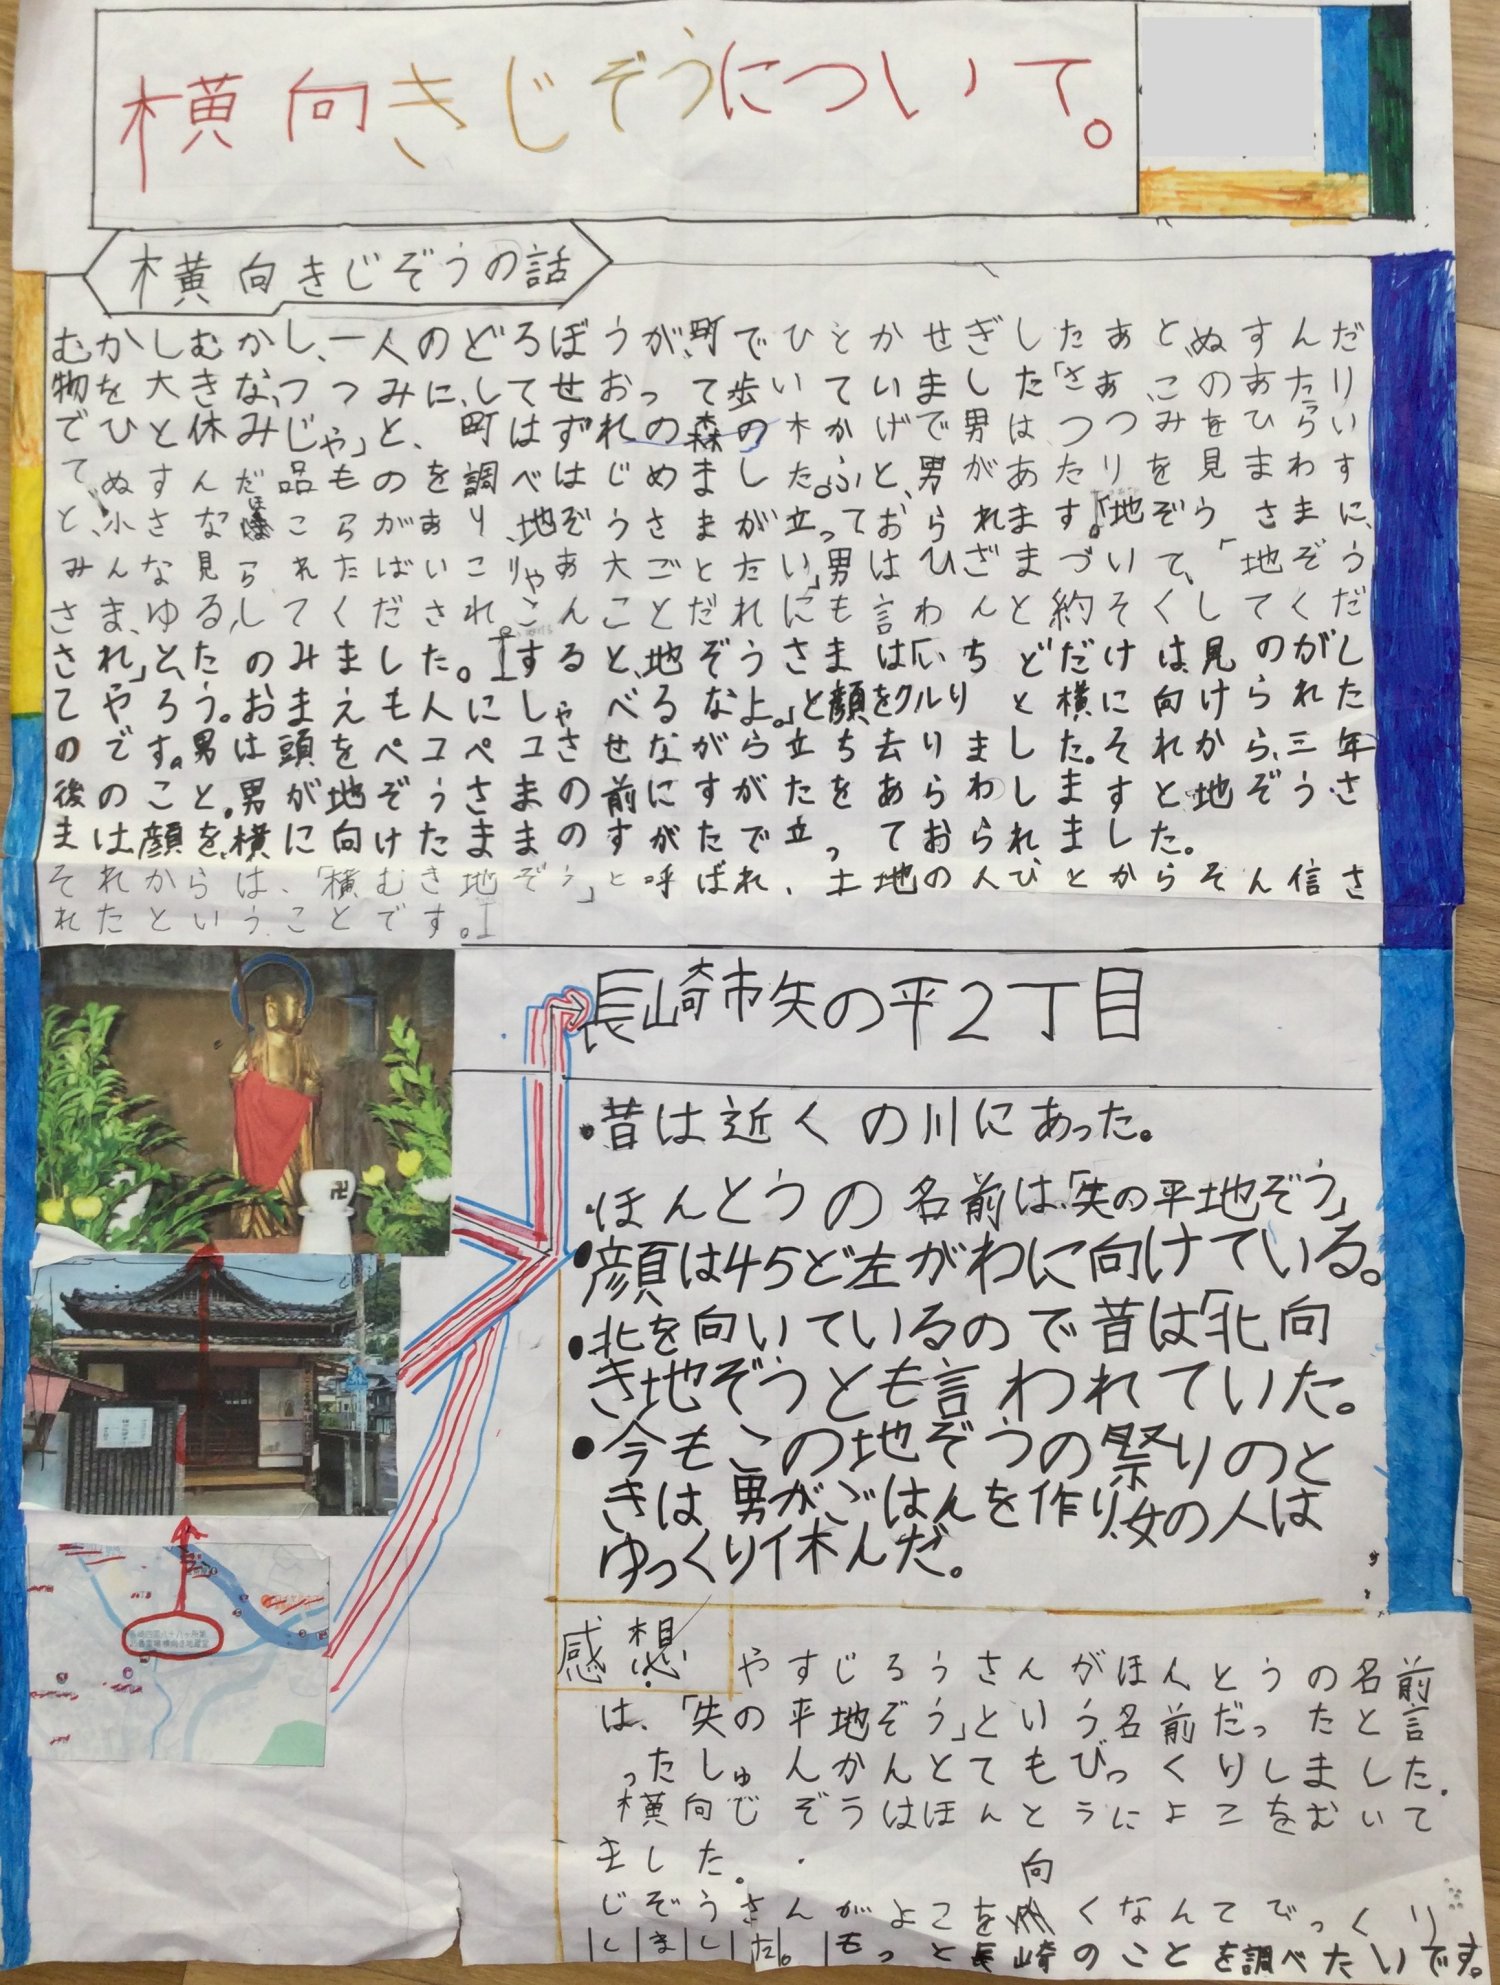 横向きじぞうについて。
横向きじぞうの話
むかしむかし、一人のどろぼうが、町でひとかせぎしたあと、ぬすんだ
物を大きな、つつみに、してせおって歩いていました「さあ、このあたり
でひと休みじゃ」と、町はずれの森の木かげで男はつつみをひらい
て、ぬすんだ品ものを調べはじめました。ふと、男があたりを見まわす
と、小さなほこらがあり、地ぞうさまが立っておられます。「地ぞうさまに、
みんな見られたばいこりゃあ大ごとたい」男はひざまづいて、「地ぞう
さま、ゆる、してくだされ。こんことだれにも言わんと約そくしてくだ
され」と、たのみました。すると、地ぞうさまは「いちどだけは、見のがし
てやろう。おまえも人にしゃべるなよ。」と顔をクルリと横に向けられた
のです。男は頭をペコペコさせながら立ち去りました。それから、三年
後のこと。男が地ぞうさまの前にすがたをあらわしますと地ぞうさ
まは、顔を、横に向けたままのすがたで立っておられました。
それからは、「横むき地ぞう」と呼ばれ、土地の人びとからそん信さ
れたということです。
長崎市矢の平2丁目
・昔は近くの川にあった。
・ほんとうの名前は、「矢の平地ぞう」
●顔は45ど左がわに向けている。
●北を向いているので昔は「北向
き地ぞうとも言われていた。
●今もこの地ぞうの祭りのと
きは男がごはんを作り、女の人は
ゆっくり休んだ。
感想
やすじろうさんがほんとうの名前
は、「失の平地ぞう」という名前だったと言
ったしゅんかんとてもびっくりしました.
横向じぞうはほんとうによこをむいて
ました。
じぞうさんがよこを向くなんてびっくり
しました。もっと長崎のことを調べたいです。